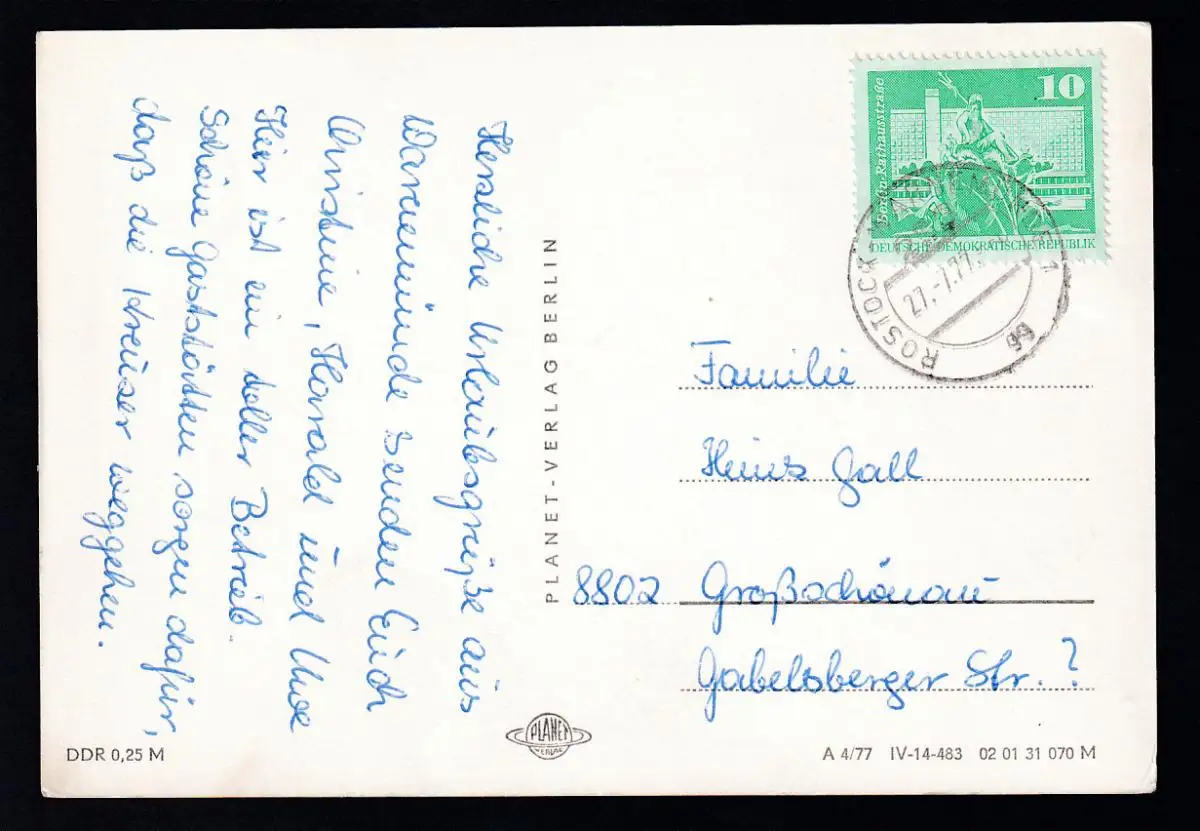 Herzliche Urlaubsgrüße aus
Warnemünde senden Euch
Christine, Harald und Uwe
Hier ist ein toller Betrieb.
Schöne Gaststätten sorgen dafür,
daß die Kreuzer weggehen.
PLANET-VERLAG BERLIN
10
Berlin, Rathausstraße
DEUTSCHE DEMOKRATISCHE REPUBLIK
ROSTOCK
27.-7.77
99
Familie
Heinz Gall
8802 Großschönau
Gabelsberger Str. ?
DDR 0,25 M
PLANET
VERLAG
A 4/77 IV-14-483 02 01 31 070 M